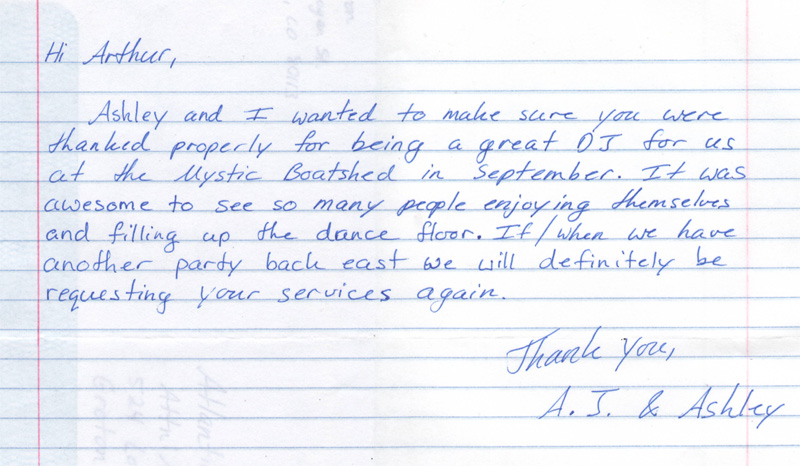 Hi Arthur,
Ashley and I wanted to make sure you were
thanked properly for being a great DJ for us
at the Mystic Boatshed in September. It was
awesome to see so many people enjoying themselves
and filling up the dance floor. If/when we have
another party back east we will definitely be
requesting your services again.
Thank you,
A.J. & Ashley